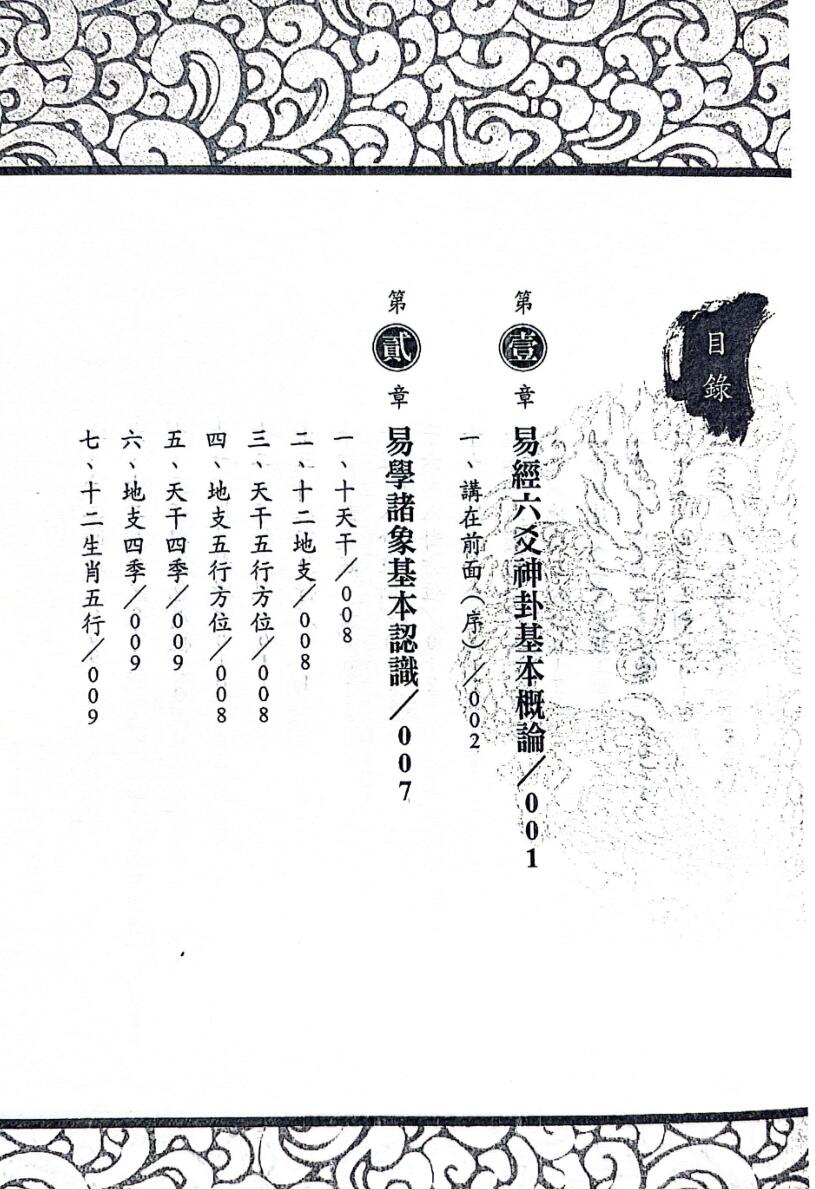 目錄
第壹章 易經六爻神卦基本概論／001
一、講在前面（序）／002
第貳章 易學諸象基本認識／007
一、十天干／008
二、十二地支／008
三、天干五行方位／008
四、地支五行方位／008
五、天干四季／009
六、地支四季／009
七、十二生肖五行／009